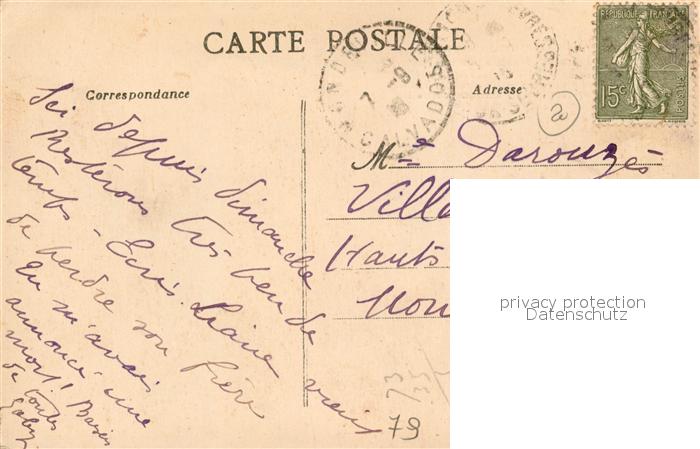 CARTE POSTALE
Correspondance
Adresse
RÉPUBLIQUE FRANÇAISE
15c
POSTES
CALVADOS
7 -9
a
Ici depuis dimanche
Resterons très peu de
temps - Ecris. Liane vient
de perdre son frère
Tu m'avais
annoncé une
mort! Baisers
de toutes
Gaby
Mme Darouzès
Villa
Hauts
Mon
73
35
79
privacy protection
Datenschutz